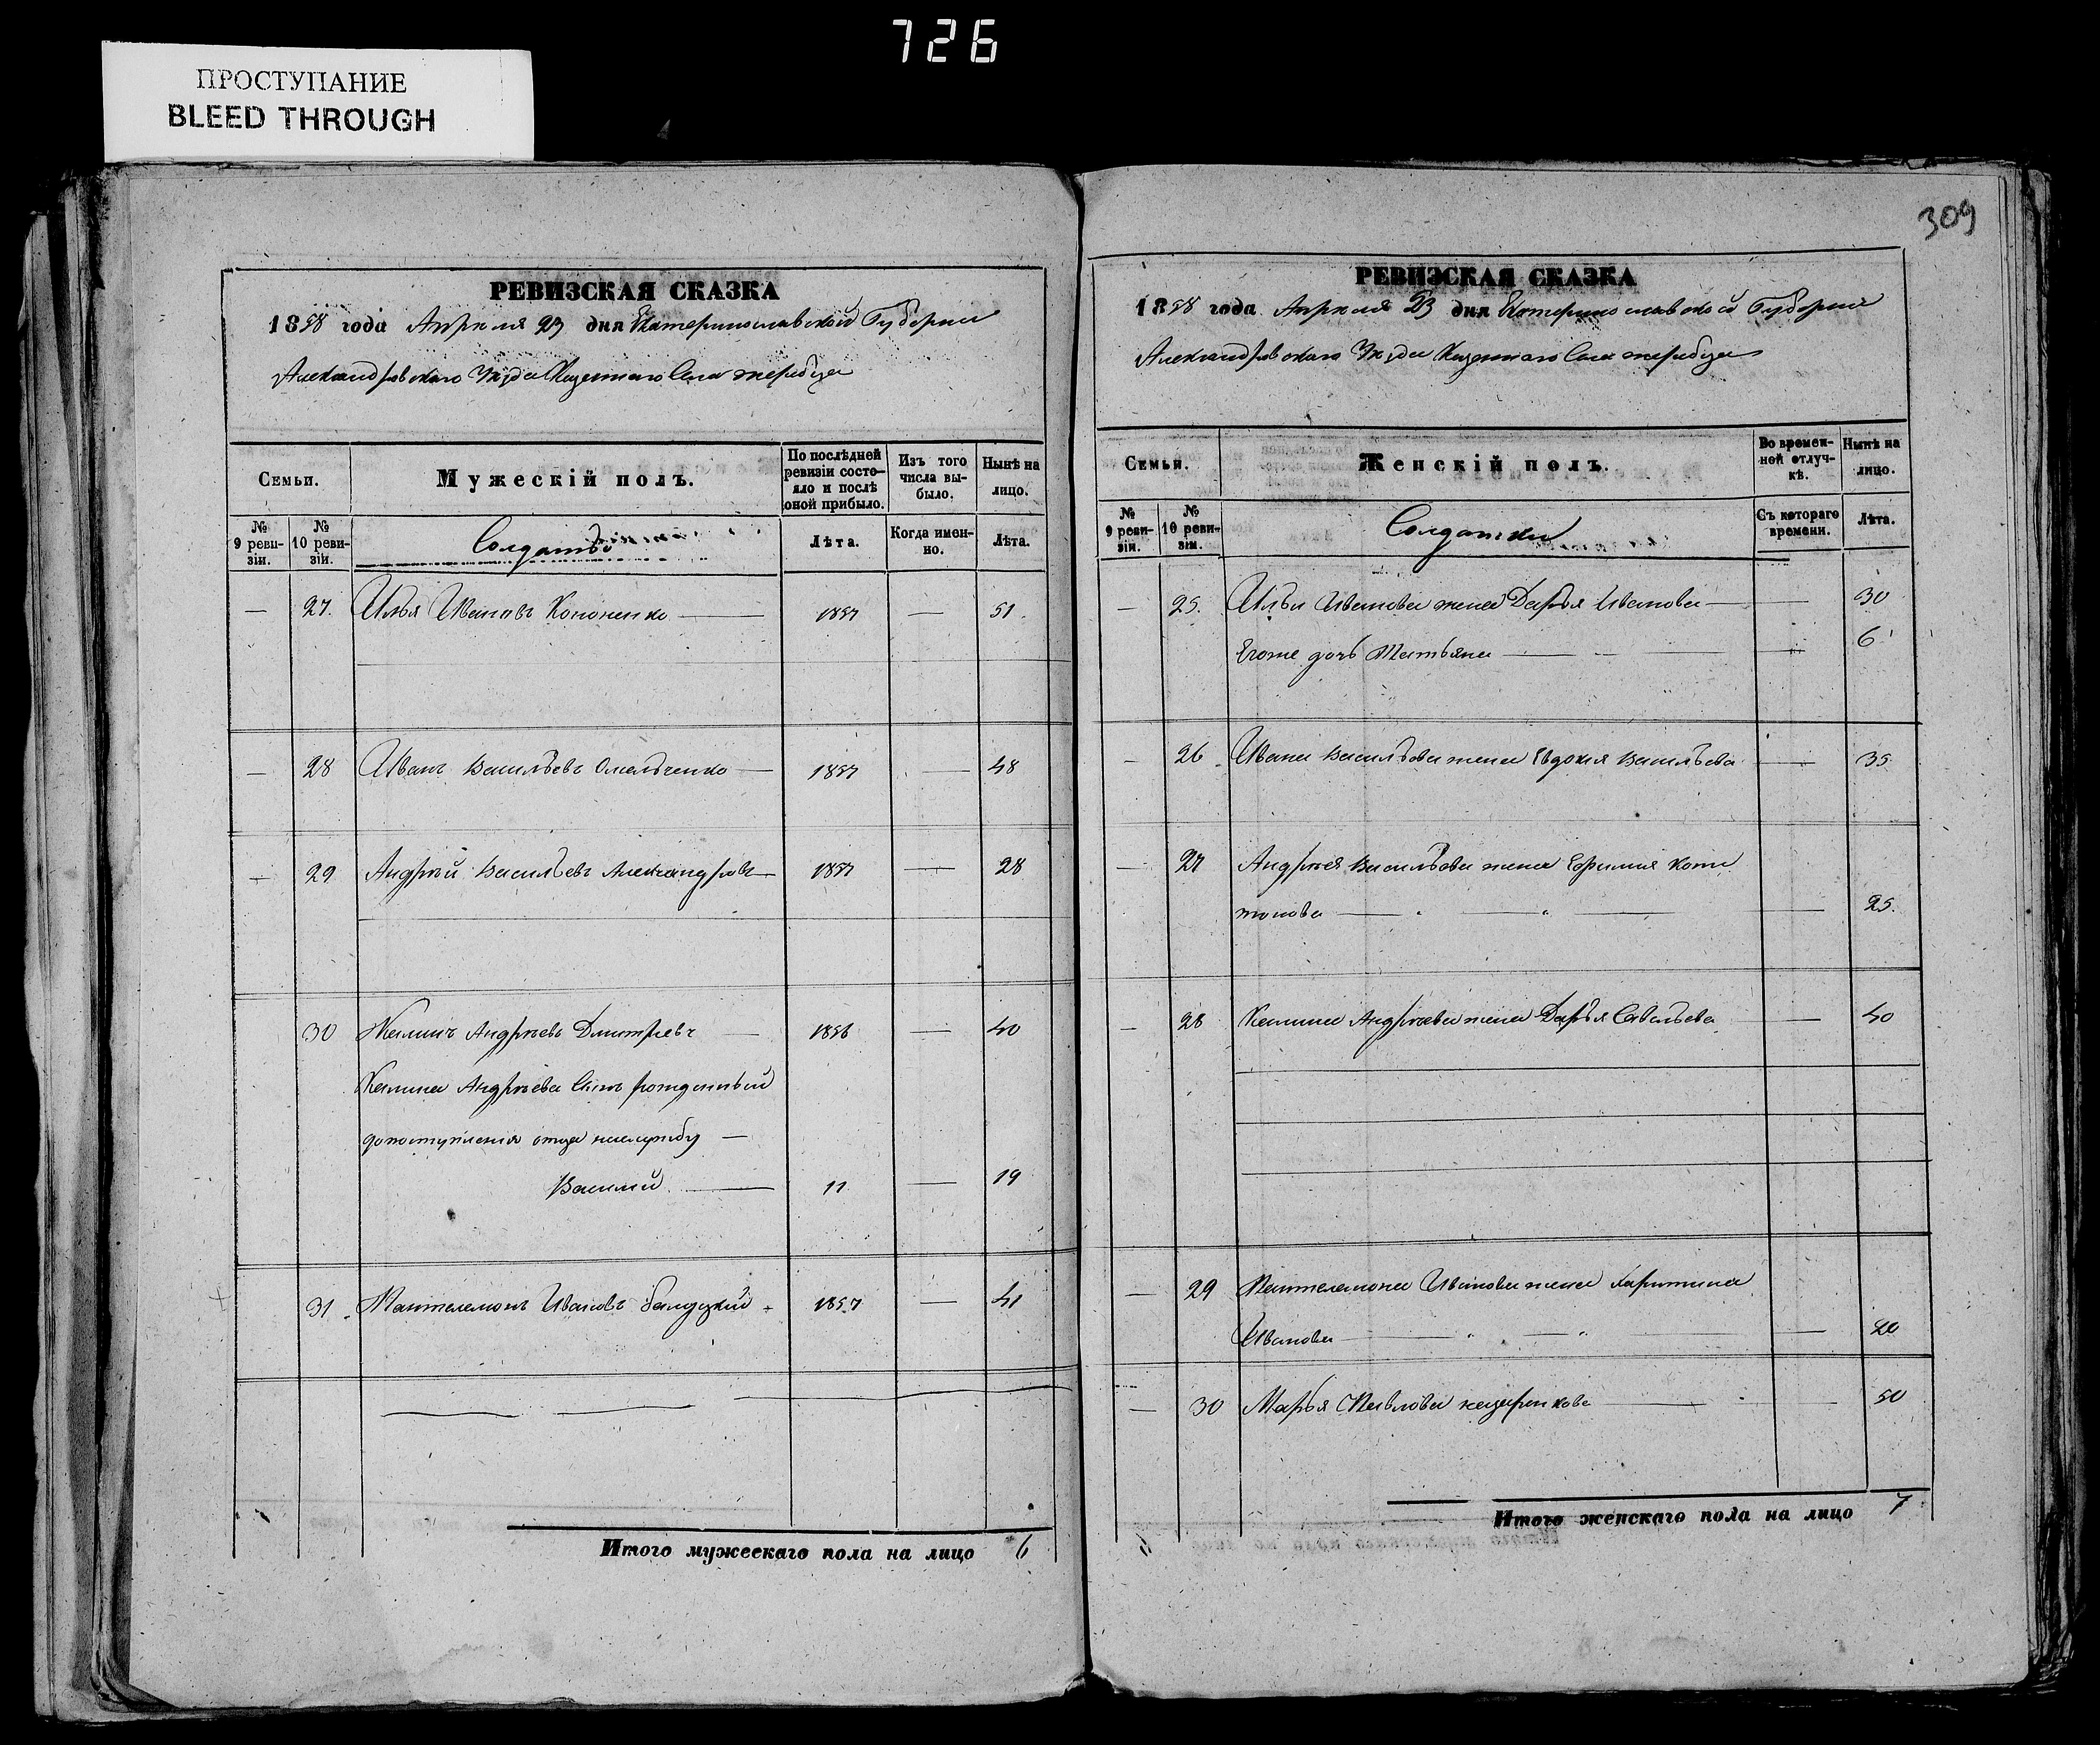 726
ПРОСТУПАНИЕ
BLEED THROUGH
309
РЕВИЗСКАЯ СКАЗКА
1858 года Апреля 23 дня Екатеринославской Губернии
Александровскаго Уезда Казеннаго Села Жеребца
Семьи.
Мужескій полъ.
По послѣдней ревизіи состояло и послѣ оной прибыло.
Изъ того числа выбыло.
Нынѣ на лицо.
№ 9 ревизіи.
№ 10 ревизіи.
Солдаты
Лѣта.
Когда именно.
Лѣта.
— 27. Илья Ивановъ Кононенко — 1857 — 51.
— 28 Иванъ Васильевъ Омельченко — 1857 — 48
— 29 Андрей Васильевъ Александровъ — 1857 — 28
30 Андреевъ Дмитріевъ — 1856 — 40
Андреева Сынъ рожденный
допоступления отца наслужбу —
Василий — 11 — 19
31. Пантелемонъ Ивановъ 1857 — 41
Итого мужескаго пола на лицо 6
РЕВИЗСКАЯ СКАЗКА
1858 года Апреля 23 дня Екатеринославской Губернии
Александровскаго Уезда Казеннаго Села Жеребца
Семьи.
Женскій полъ.
Во временной отлучкѣ.
Нынѣ на лицо.
№ 9 ревизіи.
№ 10 ревизіи.
Солдатки
Съ котораго времени.
Лѣта.
— 25. Ильи Иванова жена Дарья Иванова — — 30
Егоже дочь Татьяна — — 6
— 26. Ивана Васильева жена Евдокия Васильева — 35
— 27 Андрея Васильева жена Ефимия
— 25.
— 28 Андреева жена Дарья Савельева — 40
— 29 Пантелемона Иванова жена Харитина
Иванова — — 40
— 30 Марья Павлова — — 50
Итого женскаго пола на лицо 7